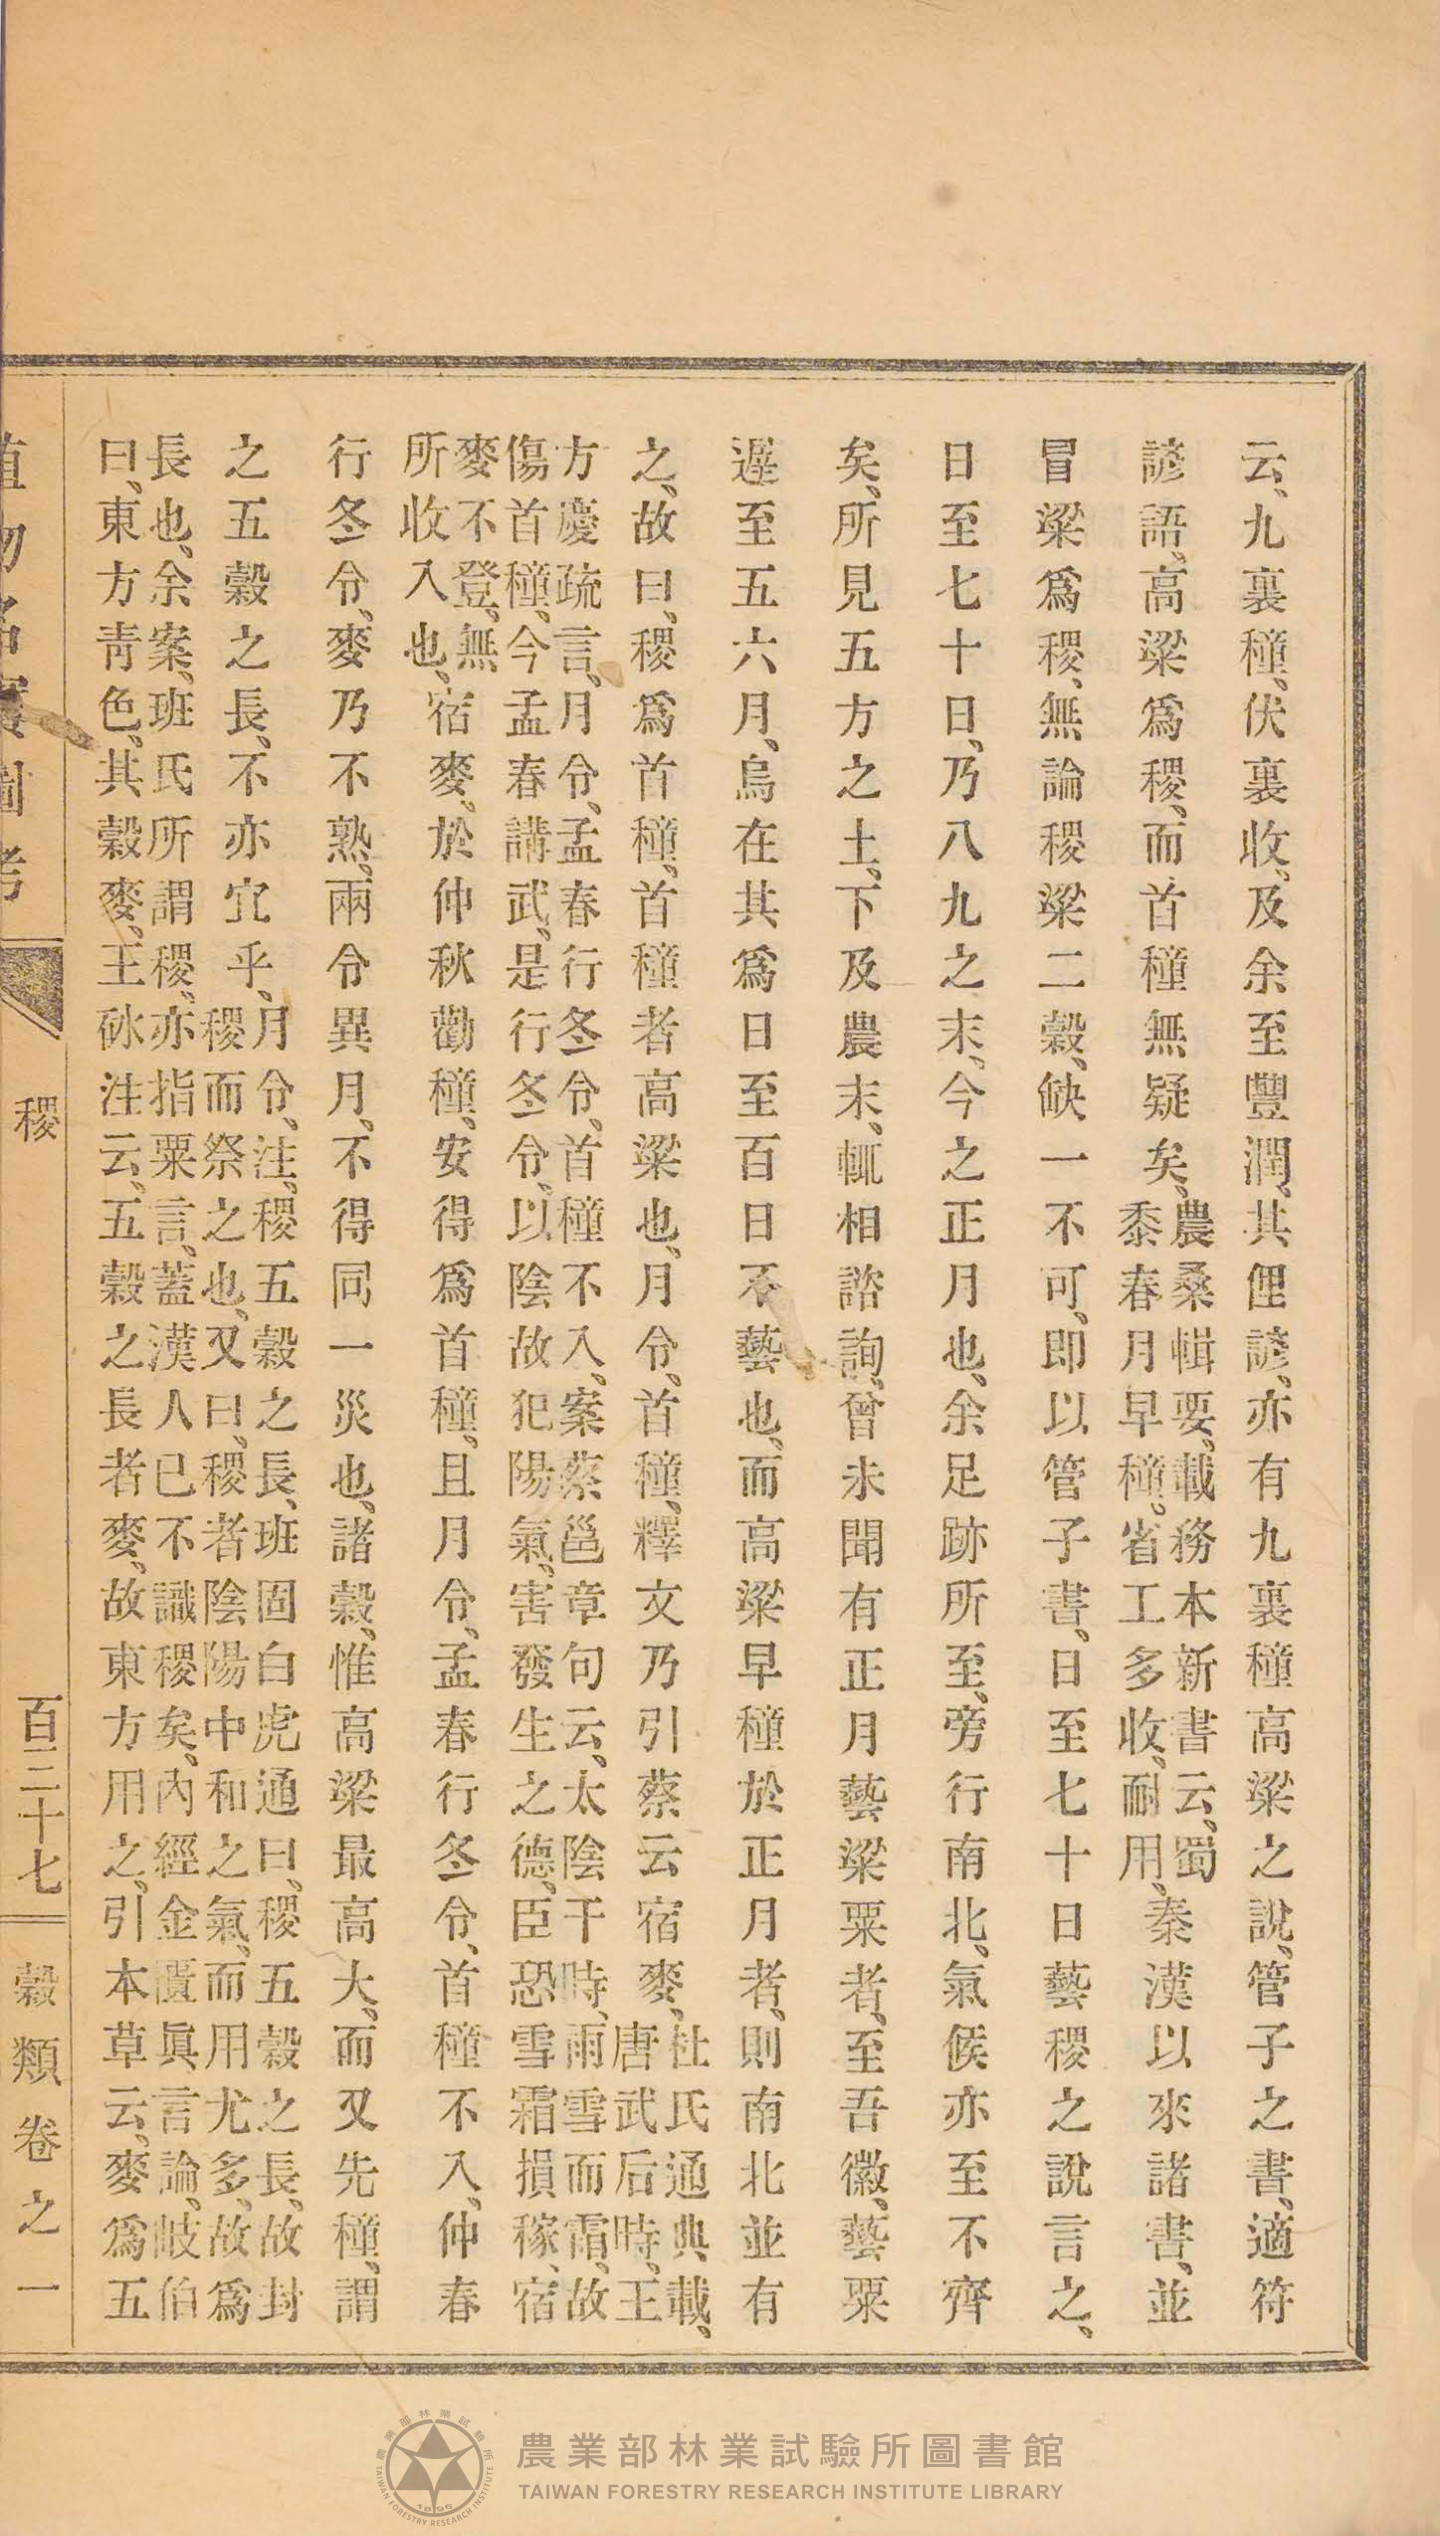 云、九裏種、伏裏收、及余至豐潤、其俚諺、亦有九裏種高粱之說、管子之書、適符
諺語、高粱爲稷、而首種無疑矣、農桑輯要、載務本新書云、蜀
黍春月早種。省工多收、耐用、秦漢以來諸書、並
冒粱爲稷、無論稷粱二穀、缺一不可、即以管子書、日至七十日藝稷之說言之、
日至七十日、乃八九之末、今之正月也、余足跡所至、旁行南北、氣候亦至不齊
矣、所見五方之土、下及農末、輒相諮詢、曾未聞有正月藝粱粟者、至吾徽、藝粟
遲至五六月、烏在其爲日至百日不藝也、而高粱早種於正月者、則南北並有
之、故曰、稷爲首種、首種者高粱也、月令、首種、釋文乃引蔡云宿麥、杜氏通典載、
唐武后時、王
方慶疏言、月令、孟春行冬令、首種不入、案蔡邕章句云、太陰干時、雨雪而霜、故
傷首種、今孟春講武、是行冬令、以陰故犯陽氣、害發生之德、臣恐雪霜損稼、宿
麥不登、無
所收入也、宿麥、於仲秋勸種、安得爲首種、且月令、孟春行冬令、首種不入、仲春
行冬令、麥乃不熟、兩令異月、不得同一災也、諸穀、惟高粱最高大、而又先種、謂
之五穀之長、不亦宜乎、月令、注、稷五穀之長、班固白虎通曰、稷五穀之長、故封
稷而祭之也、又曰、稷者陰陽中和之氣、而用尤多、故爲
長也、余案、班氏所謂稷、亦指粟言、蓋漢人已不識稷矣、內經金匱眞言論、岐伯
曰、東方靑色、其穀麥、王砅注云、五穀之長者麥、故東方用之、引本草云、麥爲五
稷
百三十七
穀類卷之一
農業部林業試驗所圖書館
TAIWAN FORESTRY RESEARCH INSTITUTE LIBRARY